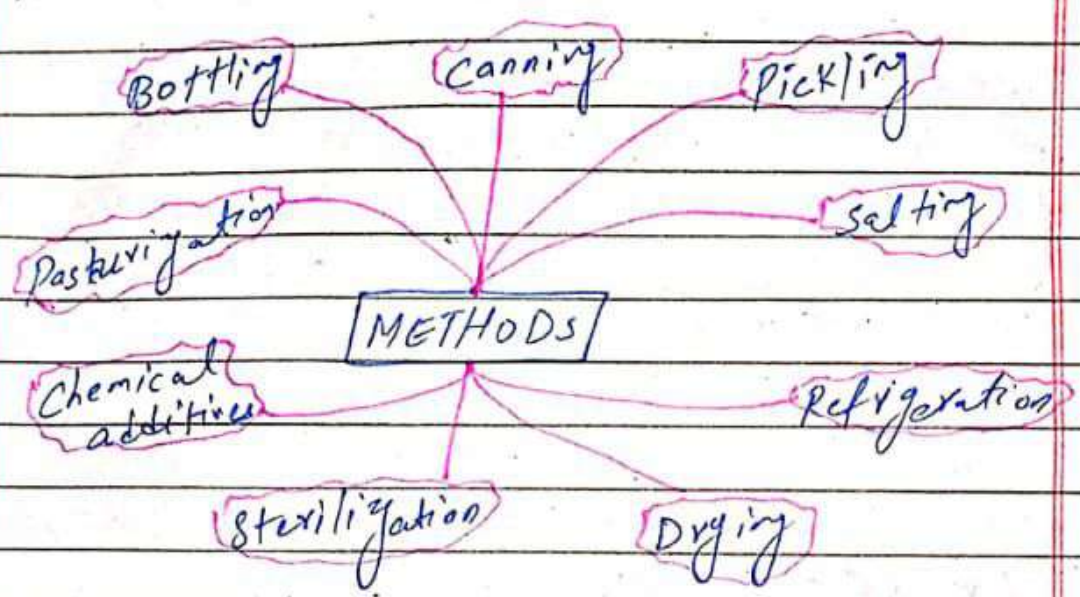 Bottling
Canning
Pickling
Pasturization
Salting
METHODS
Chemical
additives
Refrigeration
Sterilization
Drying